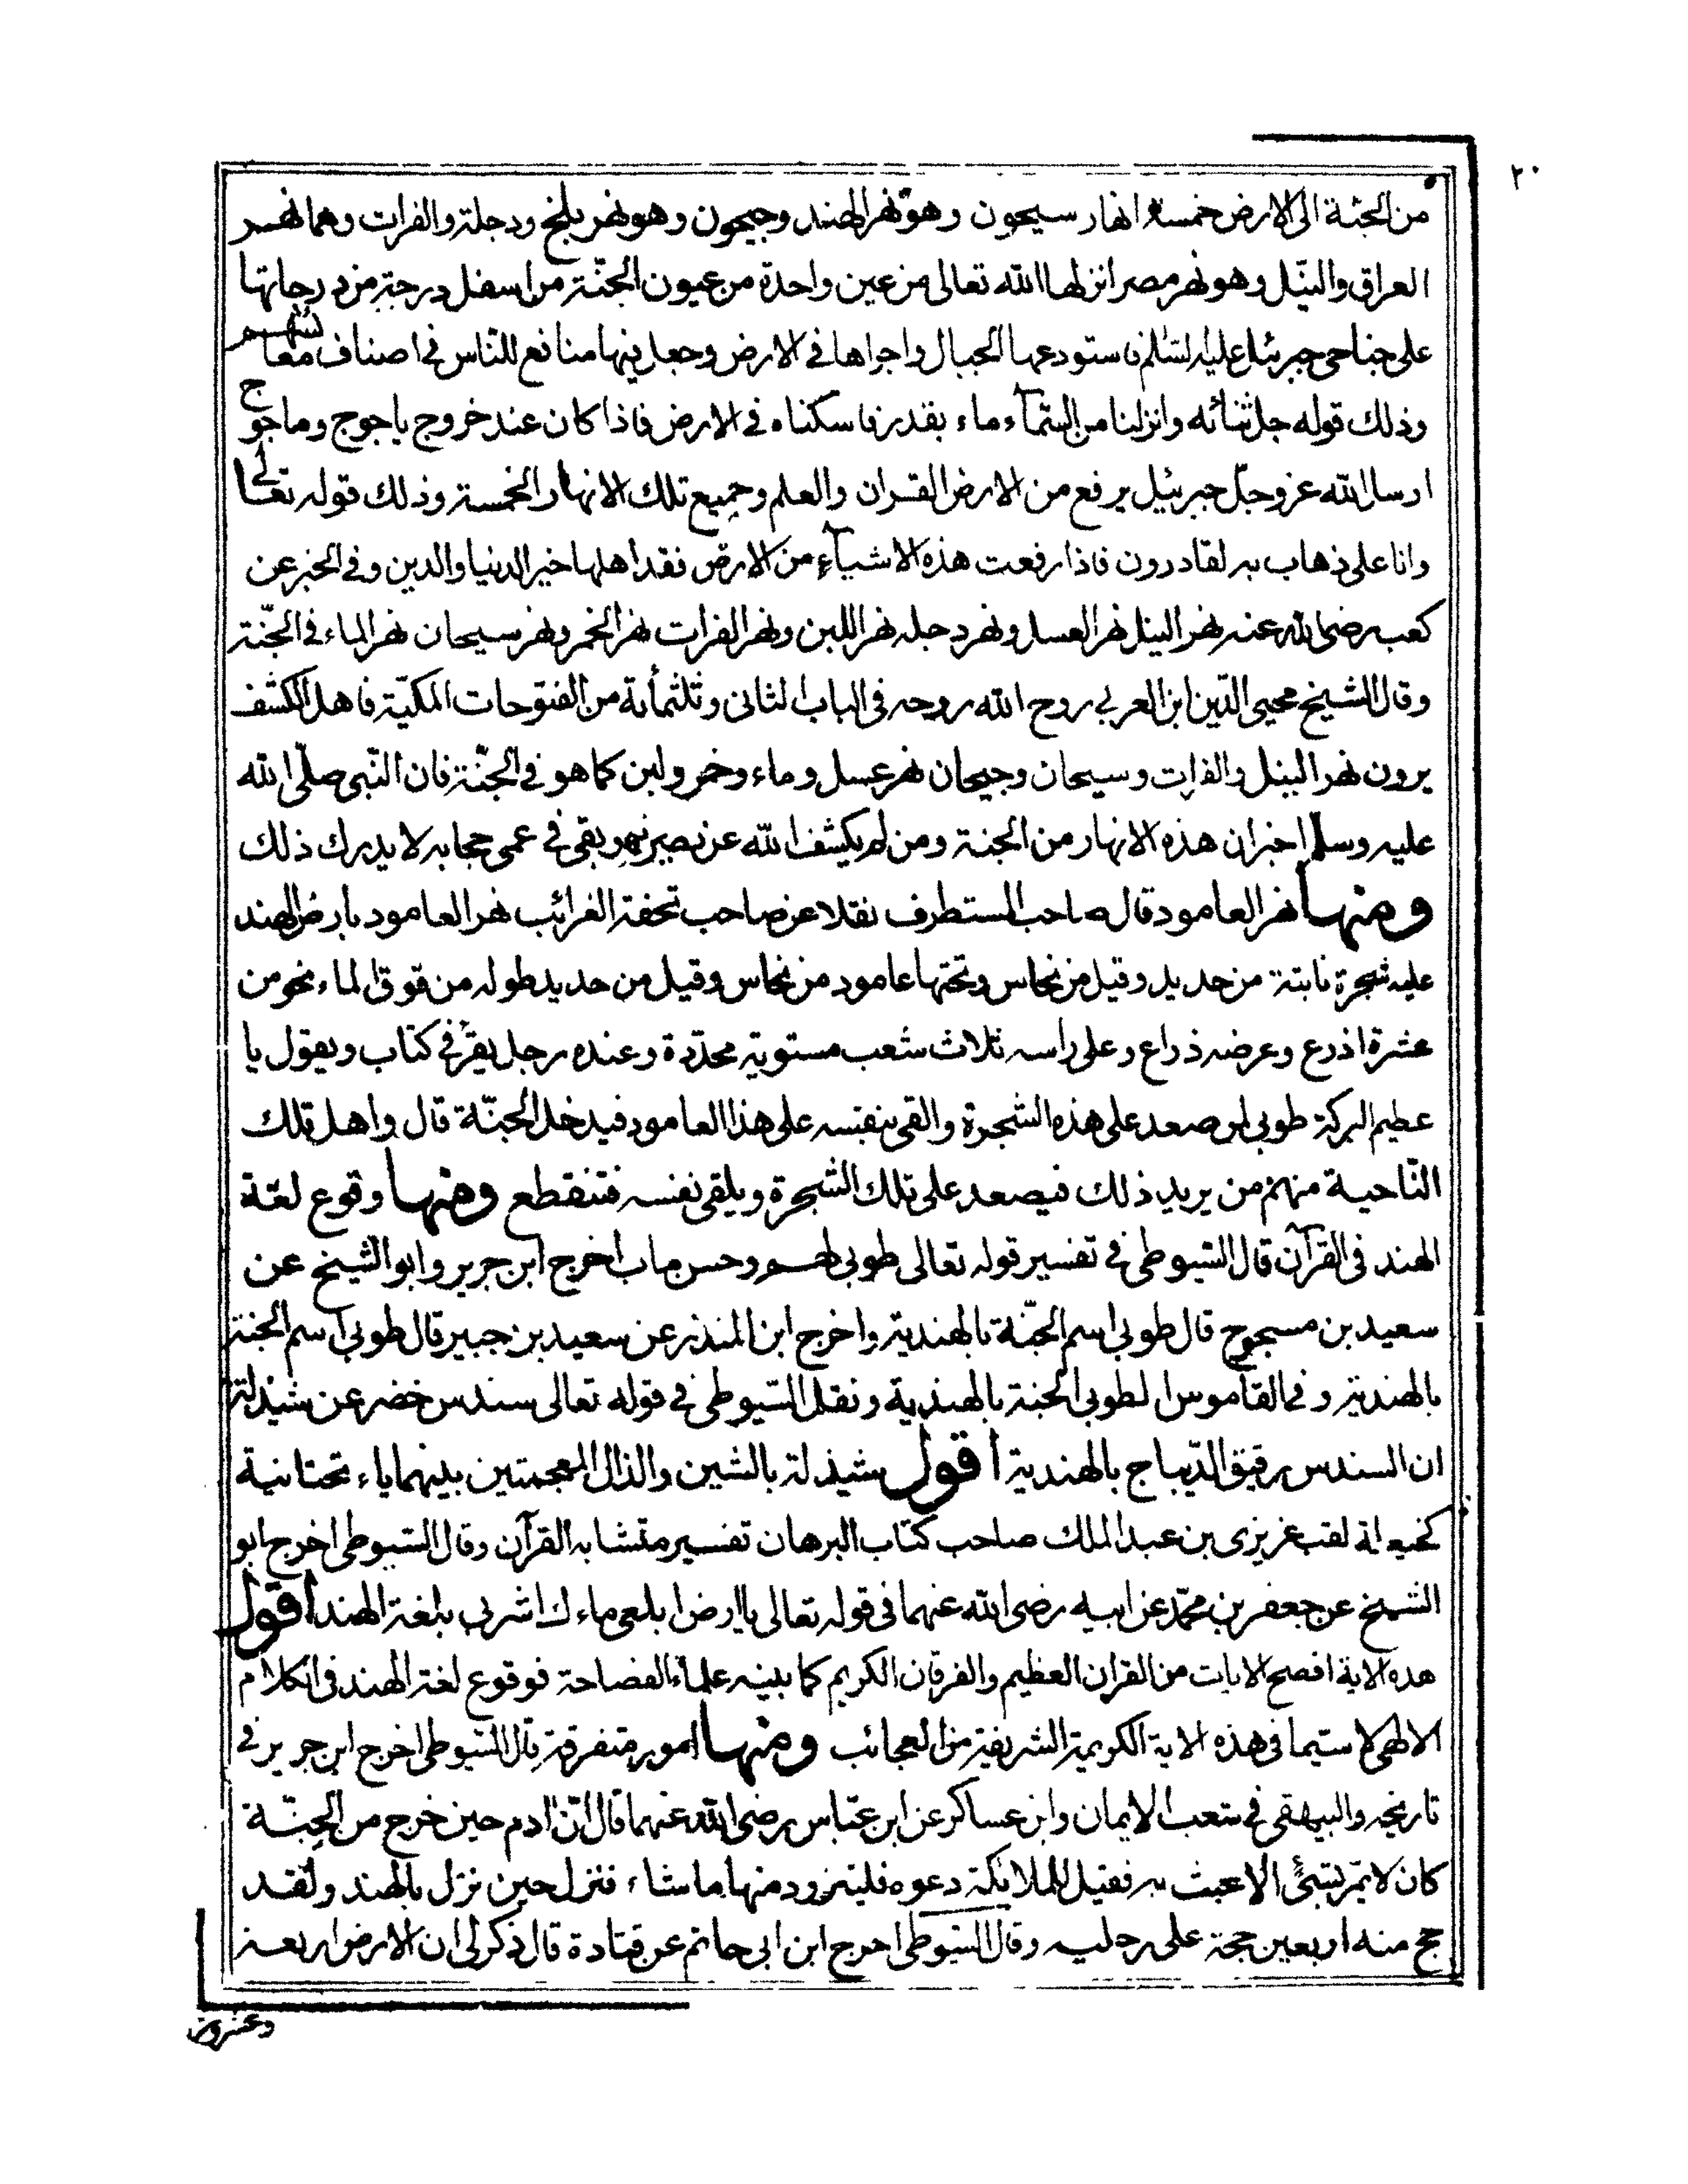 ٢٠
من الجنة الى الارض خمسة انهار سيحون وهو نهر الهند وجيحون وهو نهر بلخ ودجلة والفرات وهما نهر
العراق والنيّل وهو نهر مصر انزلها الله تعالى من عين واحدة من عيون الجنّة من اسفل درجة من درجاتها
على جناحى جبرئيل عليه السّلام فاستودعها الجبال واجراها فى الارض وجعل فيها منافع للنّاس فى اصناف معائشهم
وذلك قوله جل ثنائه وانزلنا من السّمآء ماء بقدر فاسكناه فى الارض فاذا كان عند خروج ياجوج وماجوج
ارسل الله عز وجلّ جبرئيل يرفع من الارض القران والعلم وجميع تلك الانهار الخمسة وذلك قوله تعالى
وانا على ذهاب به لقادرون فاذا رفعت هذه الاشيآء من الارض فقد اهلها خير الدنيا والدين وفى الخبر عن
كعب رضى الله عنه نهر النيل نهر العسل ونهر دجله نهر اللبن ونهر الفرات نهر الخمر ونهر سيحان نهر الماء فى الجنّة
وقال الشيخ محيى الدّين ابن العربى روح الله روحه فى الباب الثانى وثلثمأية من الفتوحات المكيّة فاهل الكشف
يرون نهر النيل والفرات وسيحان وجيحان نهر عسل وماء وخمر ولبن كما هو فى الجنّة فان النّبى صلّى الله
عليه وسلم اخبر ان هذه الانهار من الجنة ومن لم يكشف الله عن بصيرته وبقى فى عمى حجابه لا يدرك ذلك
ومنها نهر العامود قال صاحب المستطرف نقلا عن صاحب تحفة الغرائب نهر العامود بارض الهند
عليه شجرة نابتة من حديد وقيل من نحاس وتحتها عامود من نحاس وقيل من حديد طوله من فوق الماء نحو من
عشرة اذرع وعرضه ذراع وعلى راسه ثلاث شعب مستوية محدّدة وعنده رجل يقرأ فى كتاب ويقول يا
عظيم البركة طوبى لمن صعد على هذه الشجرة والقى بنفسه على هذا العامود فيدخل الجنّة قال واهل تلك
النّاحية منهم من يريد ذلك فيصعد على تلك الشجرة ويلقى نفسه فتنقطع ومنها وقوع لغة
الهند فى القرآن قال السّيوطى فى تفسير قوله تعالى طوبى لهم وحسن ماب اخرج ابن جرير وابو الشيخ عن
سعيد بن مسجوح قال طوبى اسم الجنّة بالهندية واخرج ابن المنذر عن سعيد بن جبير قال طوبى اسم الجنة
بالهندية وفى القاموس الطوبى الجنة بالهندية ونقل السّيوطى فى قوله تعالى سندس خضر عن شيذلة
ان السندس رقيق الدّيباج بالهندية اقول شيذلة بالشين والذال المعجمتين بينهما ياء تحتانية
لقب عزيزى بن عبد الملك صاحب كتاب البرهان تفسير متشابه القرآن وقال السيوطى اخرج ابو
الشيخ عن جعفر بن محمّد عن ابيه رضى الله عنهما فى قوله تعالى يا ارض ابلعى ماءك اشربى بلغة الهند اقول
هذه الاية افصح الايات من القران العظيم والفرقان الكريم كما بينه علماء الفصاحة فوقوع لغة الهند فى الكلام
الالهى لا سيّما فى هذه الاية الكريمة الشريفة من العجائب ومنها امور متفرقة قال السّيوطى اخرج ابن جرير فى
تاريخه والبيهقى فى شعب الايمان وابن عساكر عن ابن عبّاس رضى الله عنهما قال انّ ادم حين خرج من الجنّة
كان لا يمّر بشئ الا عبث به فقيل للملائكة دعوه فليتزود منها ما شاء فنزل حين نزل بالهند ولقد
حج منه اربعين حجة على رجليه وقال السّيوطى اخرج ابن ابى حاتم عن قتادة قال ذكر لى ان الارض اربعة
وعشرون